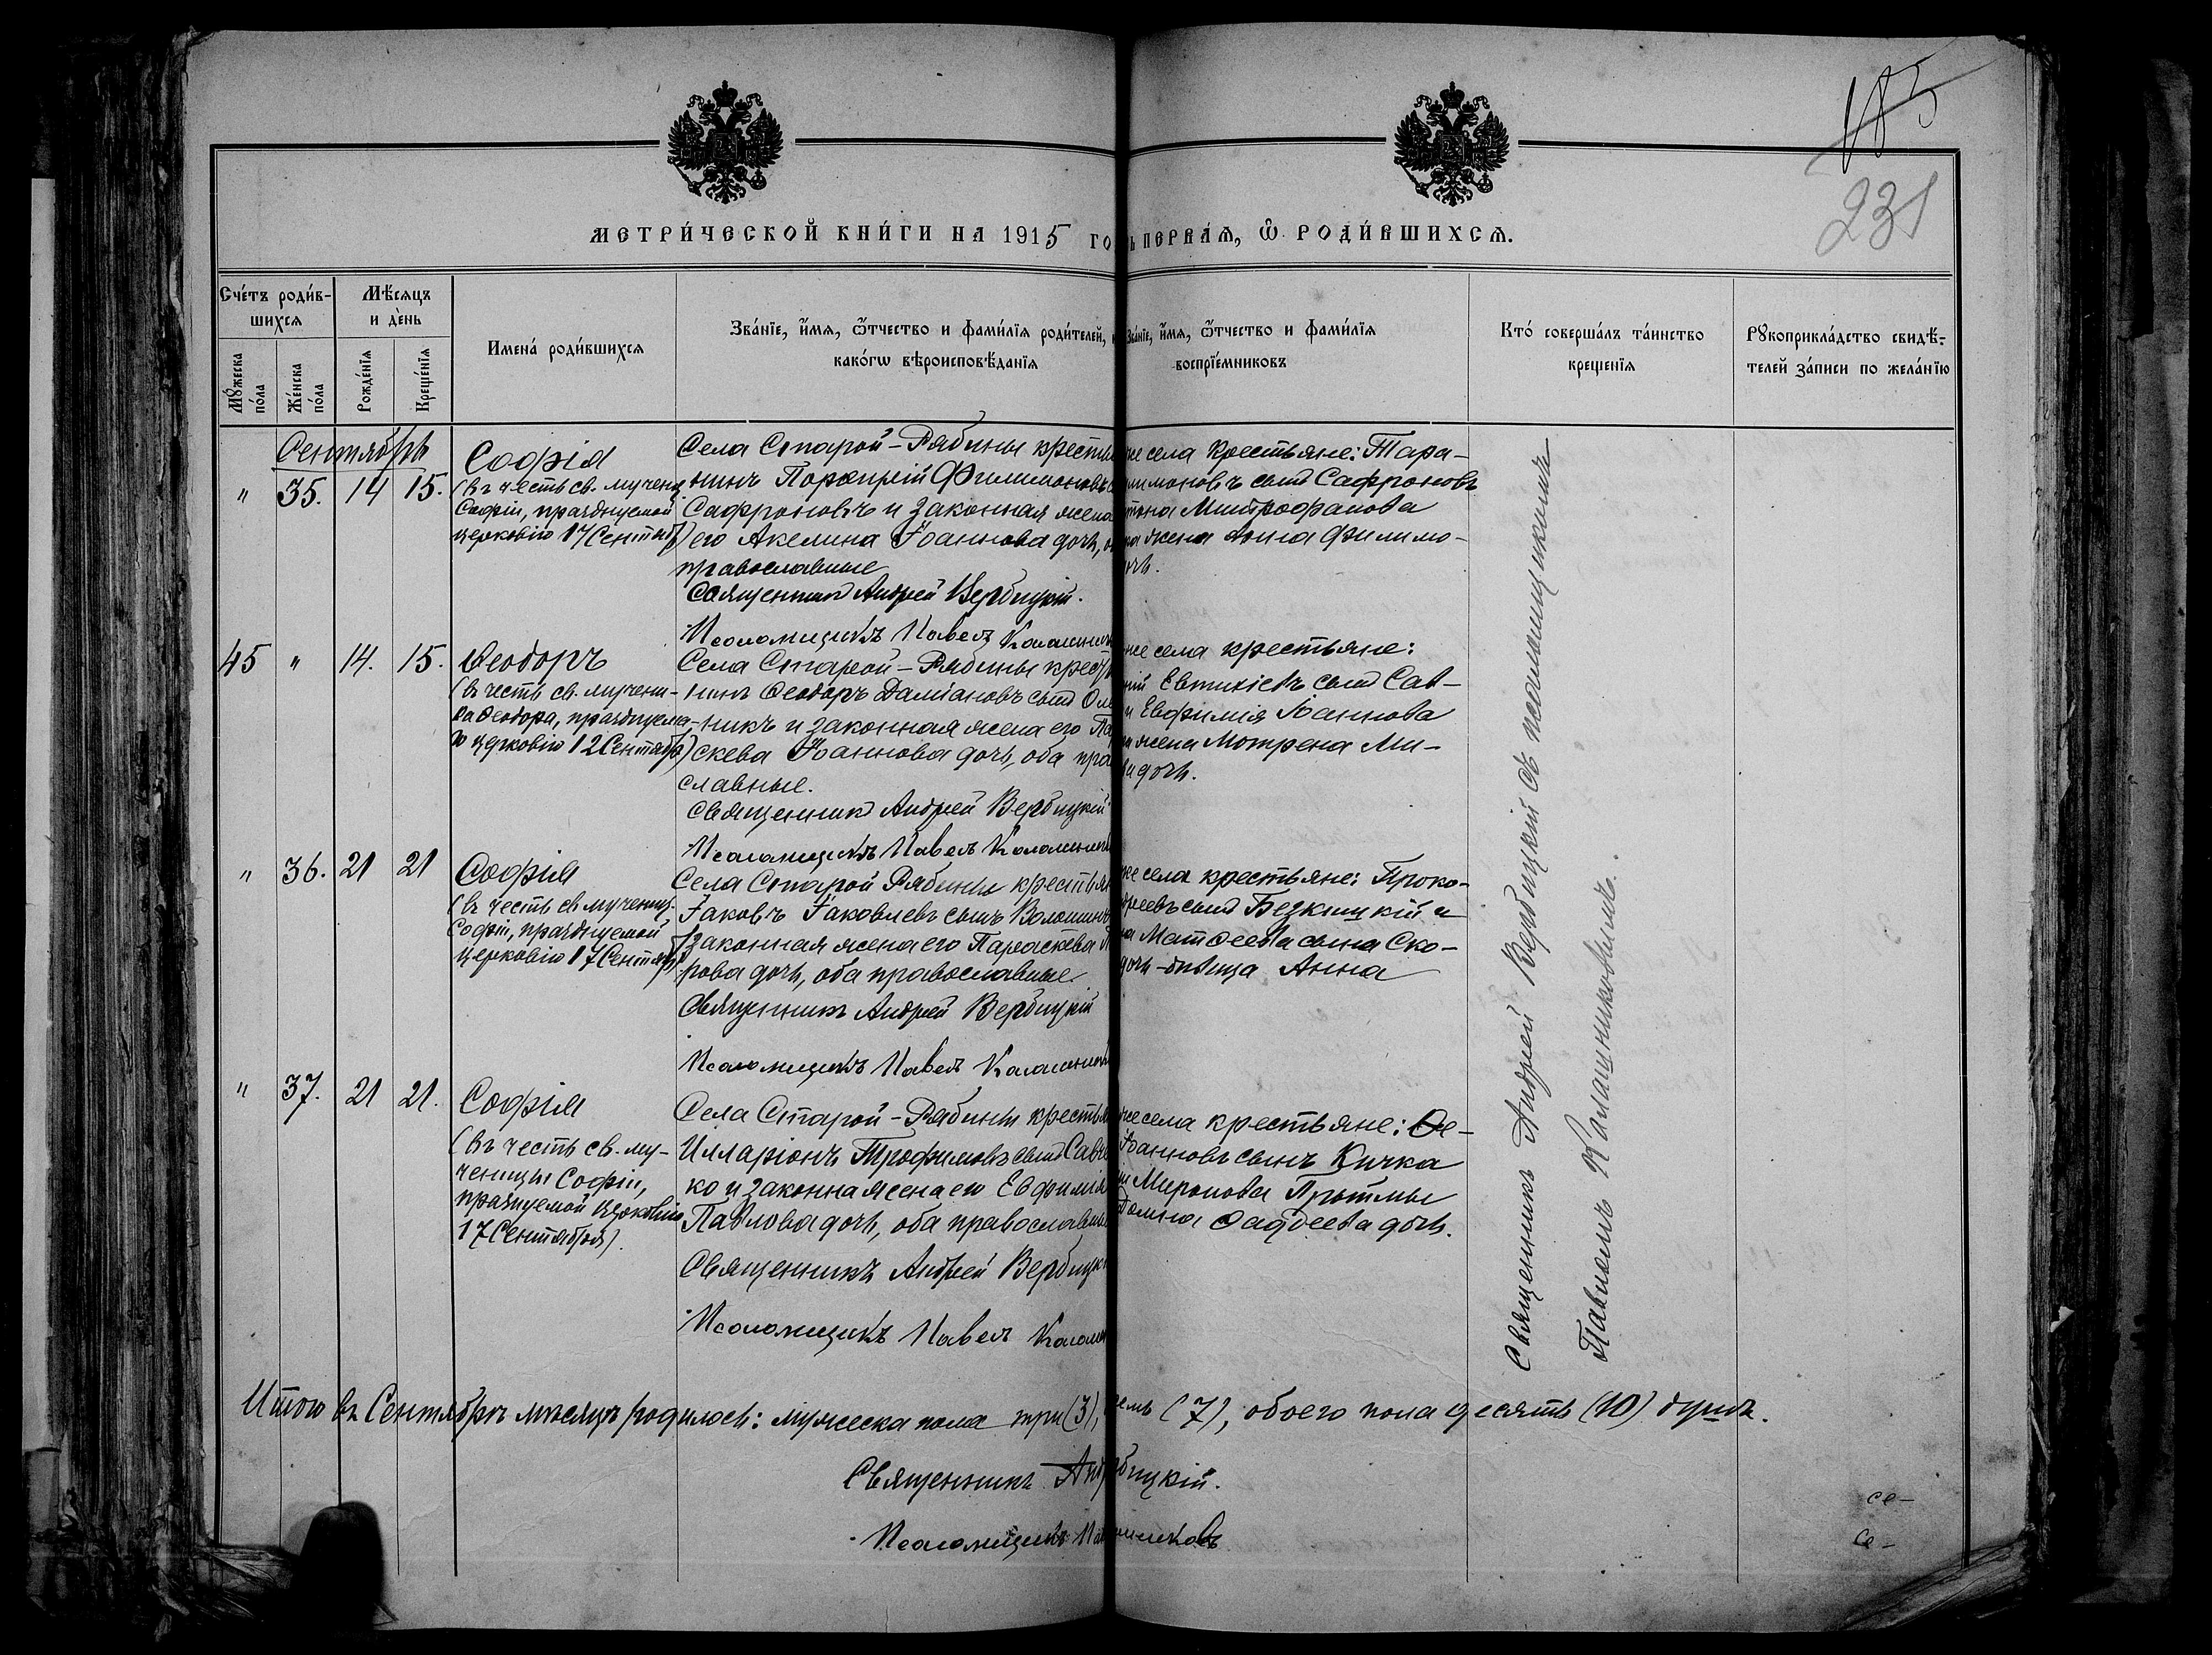 185
231
МЕТРИ́ЧЕСКОЙ КНИ́ГИ НА 1915 ГО
Ь ПЕРВА́Я, Ѽ РОДИ́ВШИХСЯ.
Сче́тъ роди́в-
шихся
Мѣ́сяцъ
и де́нь
Мꙋ́жеска по́ла
Же́нска по́ла
Рожде́нїя
Креще́нїя
Имена́ роди́вшихся
Зва́нїе, и҆́мя, ѻ҆́тчество и фами́лїя роди́телей, и
како́гѡ вѣроисповѣ́данїя
Зва́нїе, и҆́мя, ѻ҆́тчество и фами́лїя
воспрїе́мниковъ
Кто́ соверша́лъ та́инство
креще́нїя
Рꙋкоприкла́дство свидѣ́-
телей за́писи по жела́нїю
Сентябрь
" 35. 14 15.
Софія
(въ честь св. мучениц.
Софіи, празднуемой
церковію 17 Сентяб.)
Села Старой-Рябины крестья
нинъ Порфирій Филимоновъ с
Сафроновъ и законная жена
его Акелина Іоаннова дочь, о
православные
Священникъ Андрей Вербицкій.
Псаломщикъ Павелъ Калашник
же села крестьяне: Тара-
лимоновъ сынъ Сафроновъ
Митрофанова
жена Анна Филимо-
очь.
45 " 14. 15.
Ѳеодоръ
(въ честь св. мучени-
ка Ѳеодора, празднуема-
го церковію 12 Сентябр)
Села Старой-Рябины крестья
нинъ Ѳеодоръ Даміановъ сынъ Оле
никъ и законная жена его Па
скева Іоаннова дочь, оба пра
славные.
Священникъ Андрей Вербицкій
Псаломщикъ Павелъ Калашник
же села крестьяне:
ній Евтихіевъ сынъ Сав-
и Евфимія Іоаннова
жена Мотрена Ми-
ва дочь.
" 36. 21 21
Софія
(въ честь св мучениц.
Софіи, празднуемой
церковію 17 Сентяб)
Села Старой Рябины крестьян
Іаковъ Іаковлевъ сынъ Волошинъ
законная жена его Параскева П
рова дочь, оба православные.
Священникъ Андрей Вербицкій
Псаломщикъ Павелъ Калашников
же села крестьяне: Проко-
дреевъ сынъ Безкищкій и
на Матѳеева сына Ско-
дочь-дѣвица Анна
" 37. 21 21.
Софія
(въ честь св. му-
ченицы Софіи,
празнуемой церковію
17 Сентября).
Села Старой-Рябины крестья
Илларіонъ Трофимовъ сынъ Савче
ко и законная жена его Евфимія
Павлова дочь, оба православные
Священникъ Андрей Вербицкі
Псаломщикъ Павелъ Калаш
же села крестьяне: Ѳе-
Іоанновъ сынъ Кичка
Миронова Пріймы
Ѳаддеева дочь.
Священникъ Андрей Вербицкій съ псаломщикомъ
Павломъ Калашниковымъ.
Итого въ Сентябрѣ мѣсяцѣ родилось: мужеска пола три (3), семь (7), обоего пола десять (10) душъ.
Священникъ Андр бицкій.
Псаломщикъ Пав шниковъ
се-
се-